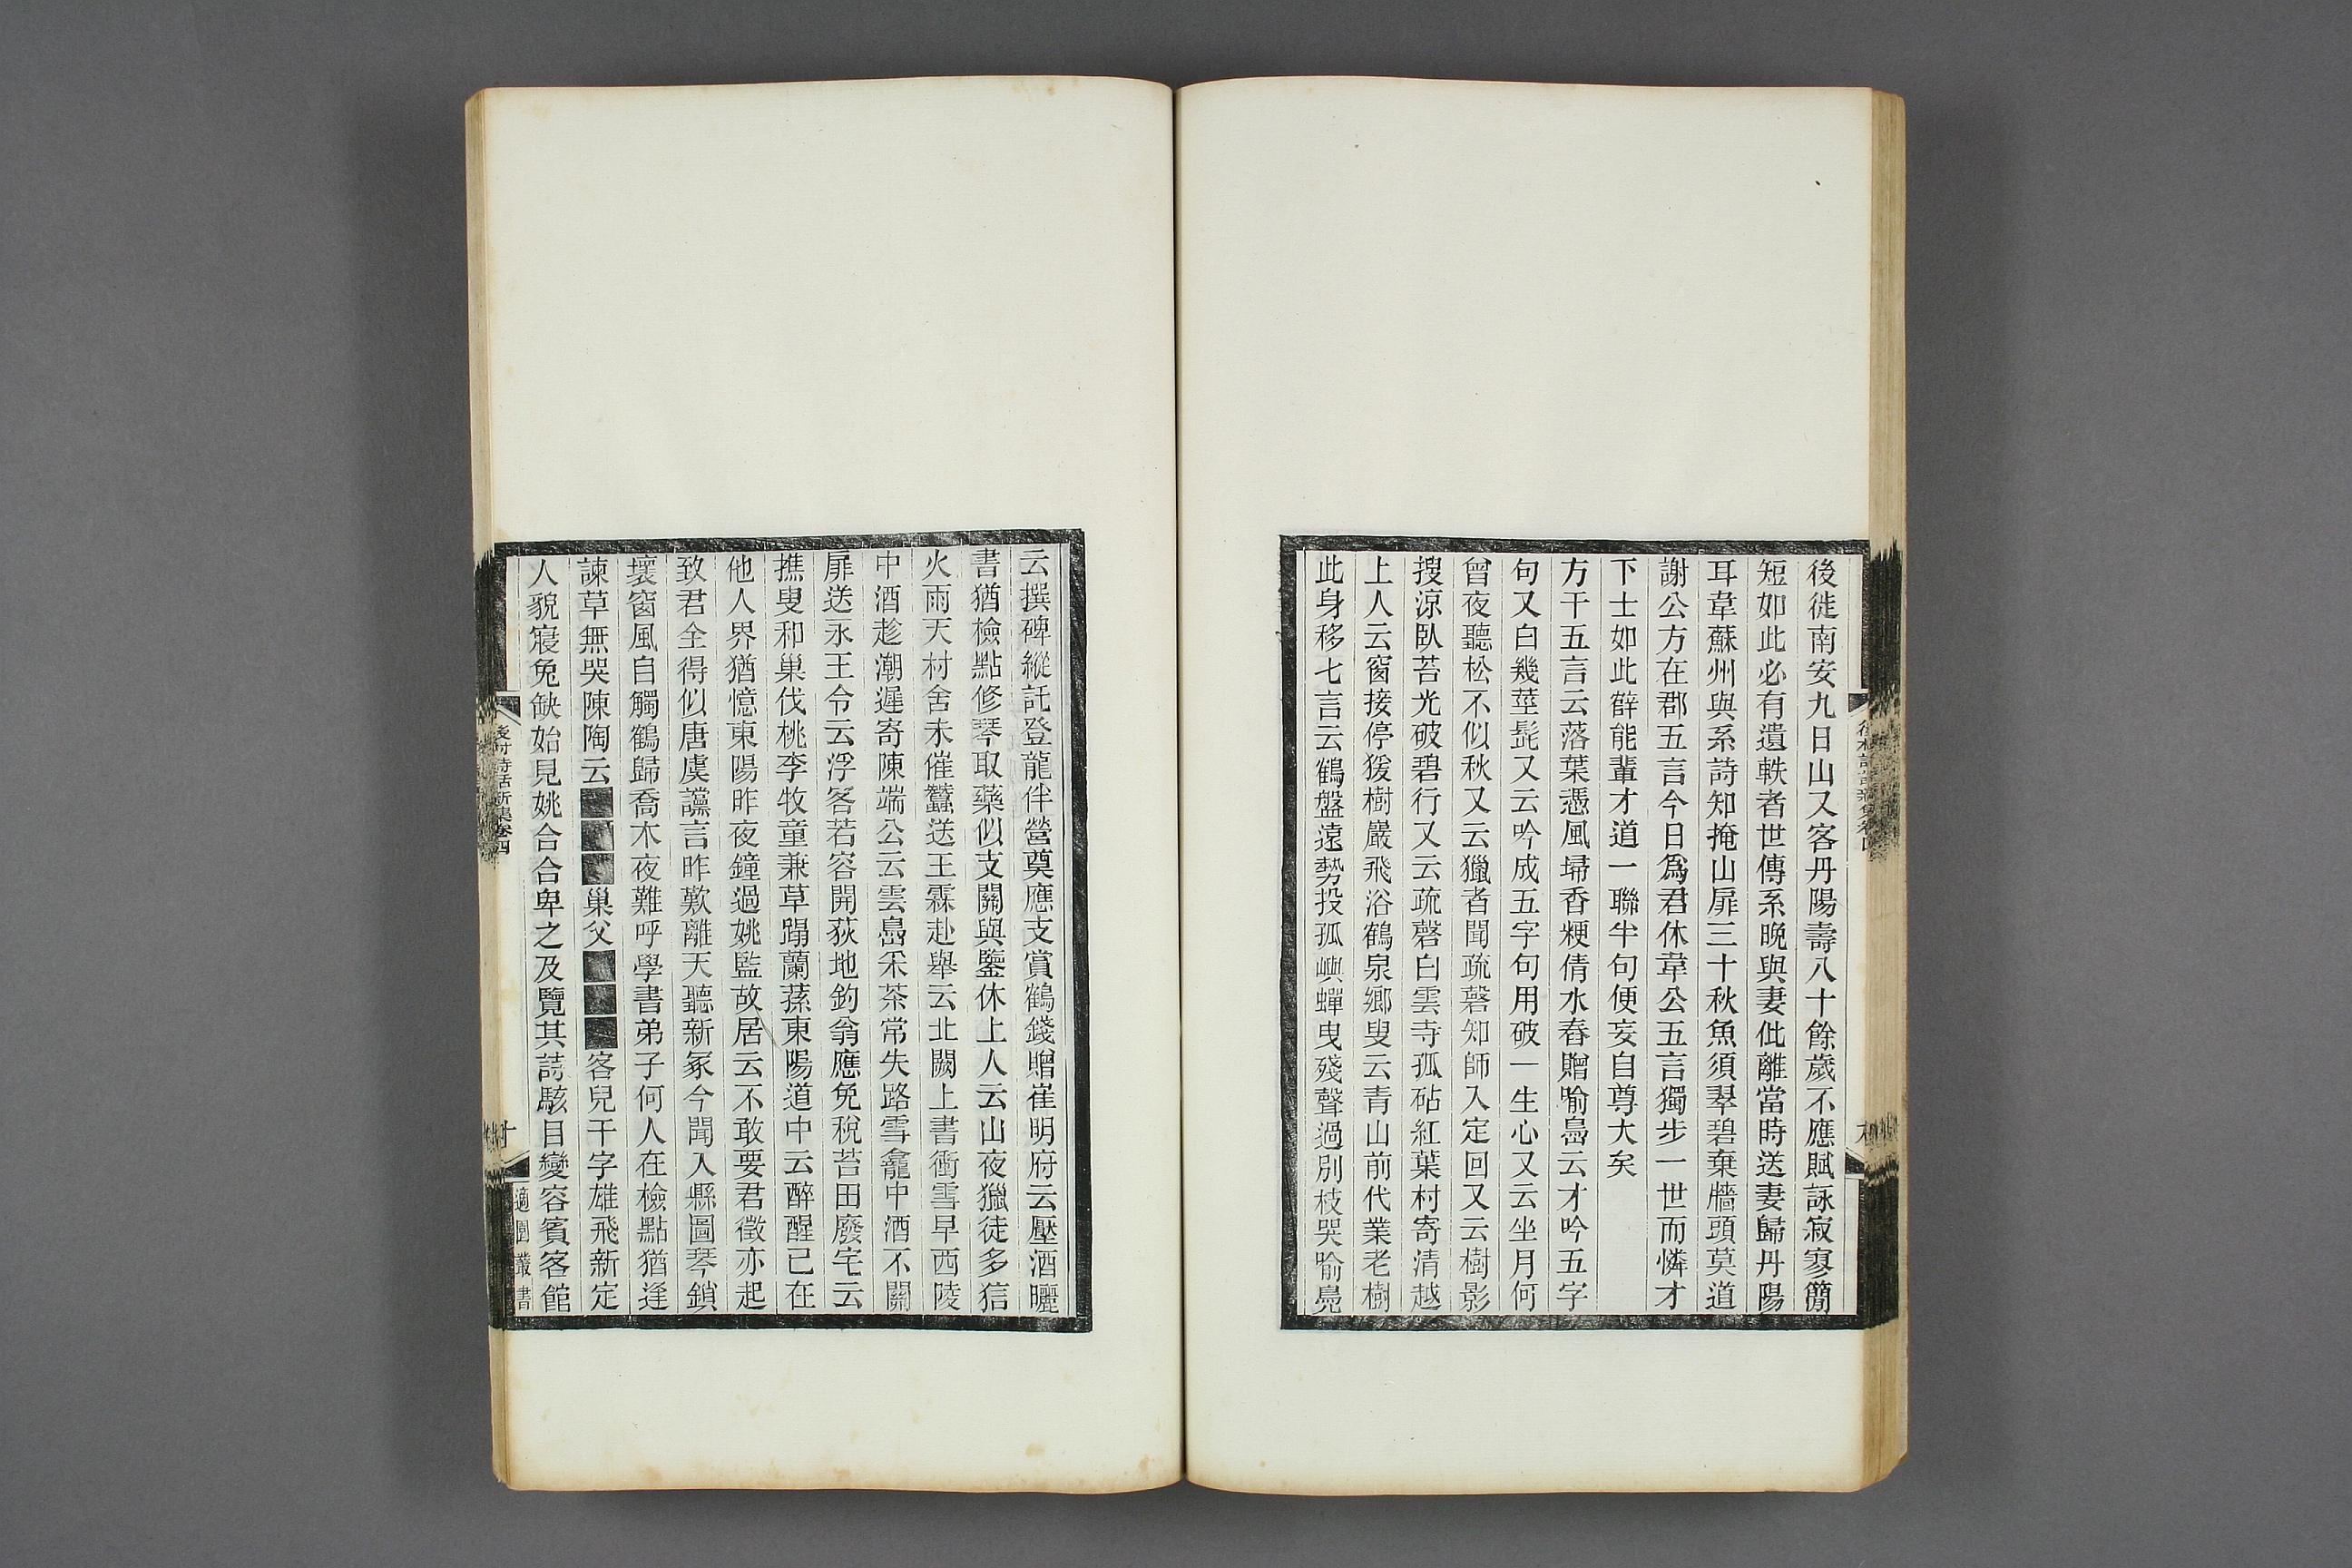 後徙南安九日山又客丹陽壽八十餘歲不應賦詠寂寥簡
短如此必有遺軼者世傳系晚與妻仳離當時送妻歸丹陽
耳韋蘇州與系詩知掩山扉三十秋魚須翠碧棄牆頭莫道
謝公方在郡五言今日爲君休韋公五言獨步一世而憐才
下士如此薛能輩才道一聯半句便妄自尊大矣
方干五言云落葉憑風埽香粳倩水舂贈喻鳧云才吟五字
句又白幾莖髭又云吟成五字句用破一生心又云坐月何
曾夜聽松不似秋又云獵者聞疏磬知師入定回又云樹影
搜涼臥苔光破碧行又云疏磬白雲寺孤砧紅葉村寄清越
上人云窗接停猨樹巖飛浴鶴泉鄉叟云青山前代業老樹
此身移七言云鶴盤遠勢投孤嶼蟬曳殘聲過別枝哭喻鳧
云撰碑縱託登龍伴營奠應支賞鶴錢贈崔明府云壓酒曬
書猶檢點修琴取藥似支關與鑒休上人云山夜獵徒多信
火雨天村舍未催蠶送王霖赴舉云北闕上書衝雪早西陵
中酒趁潮遲寄陳端公云雲島采茶常失路雪龕中酒不關
扉送永王令云浮客若容開荻地釣翁應免稅苔田廢宅云
樵叟和巢伐桃李牧童兼草蹋蘭蓀東陽道中云醉醒已在
他人界猶憶東陽昨夜鐘過姚監故居云不敢要君徵亦起
致君全得似唐虞讜言昨歎離天聽新冢今聞入縣圖琴鎖
壞窗風自觸鶴歸喬木夜難呼學書弟子何人在檢點猶逢
諫草無哭陳陶云■■■巢父■■■客兒干字雄飛新定
人貌寢兔缺始見姚合合卑之及覽其詩駭目變容賓客館
後村詩話新集卷四
十
適園叢書